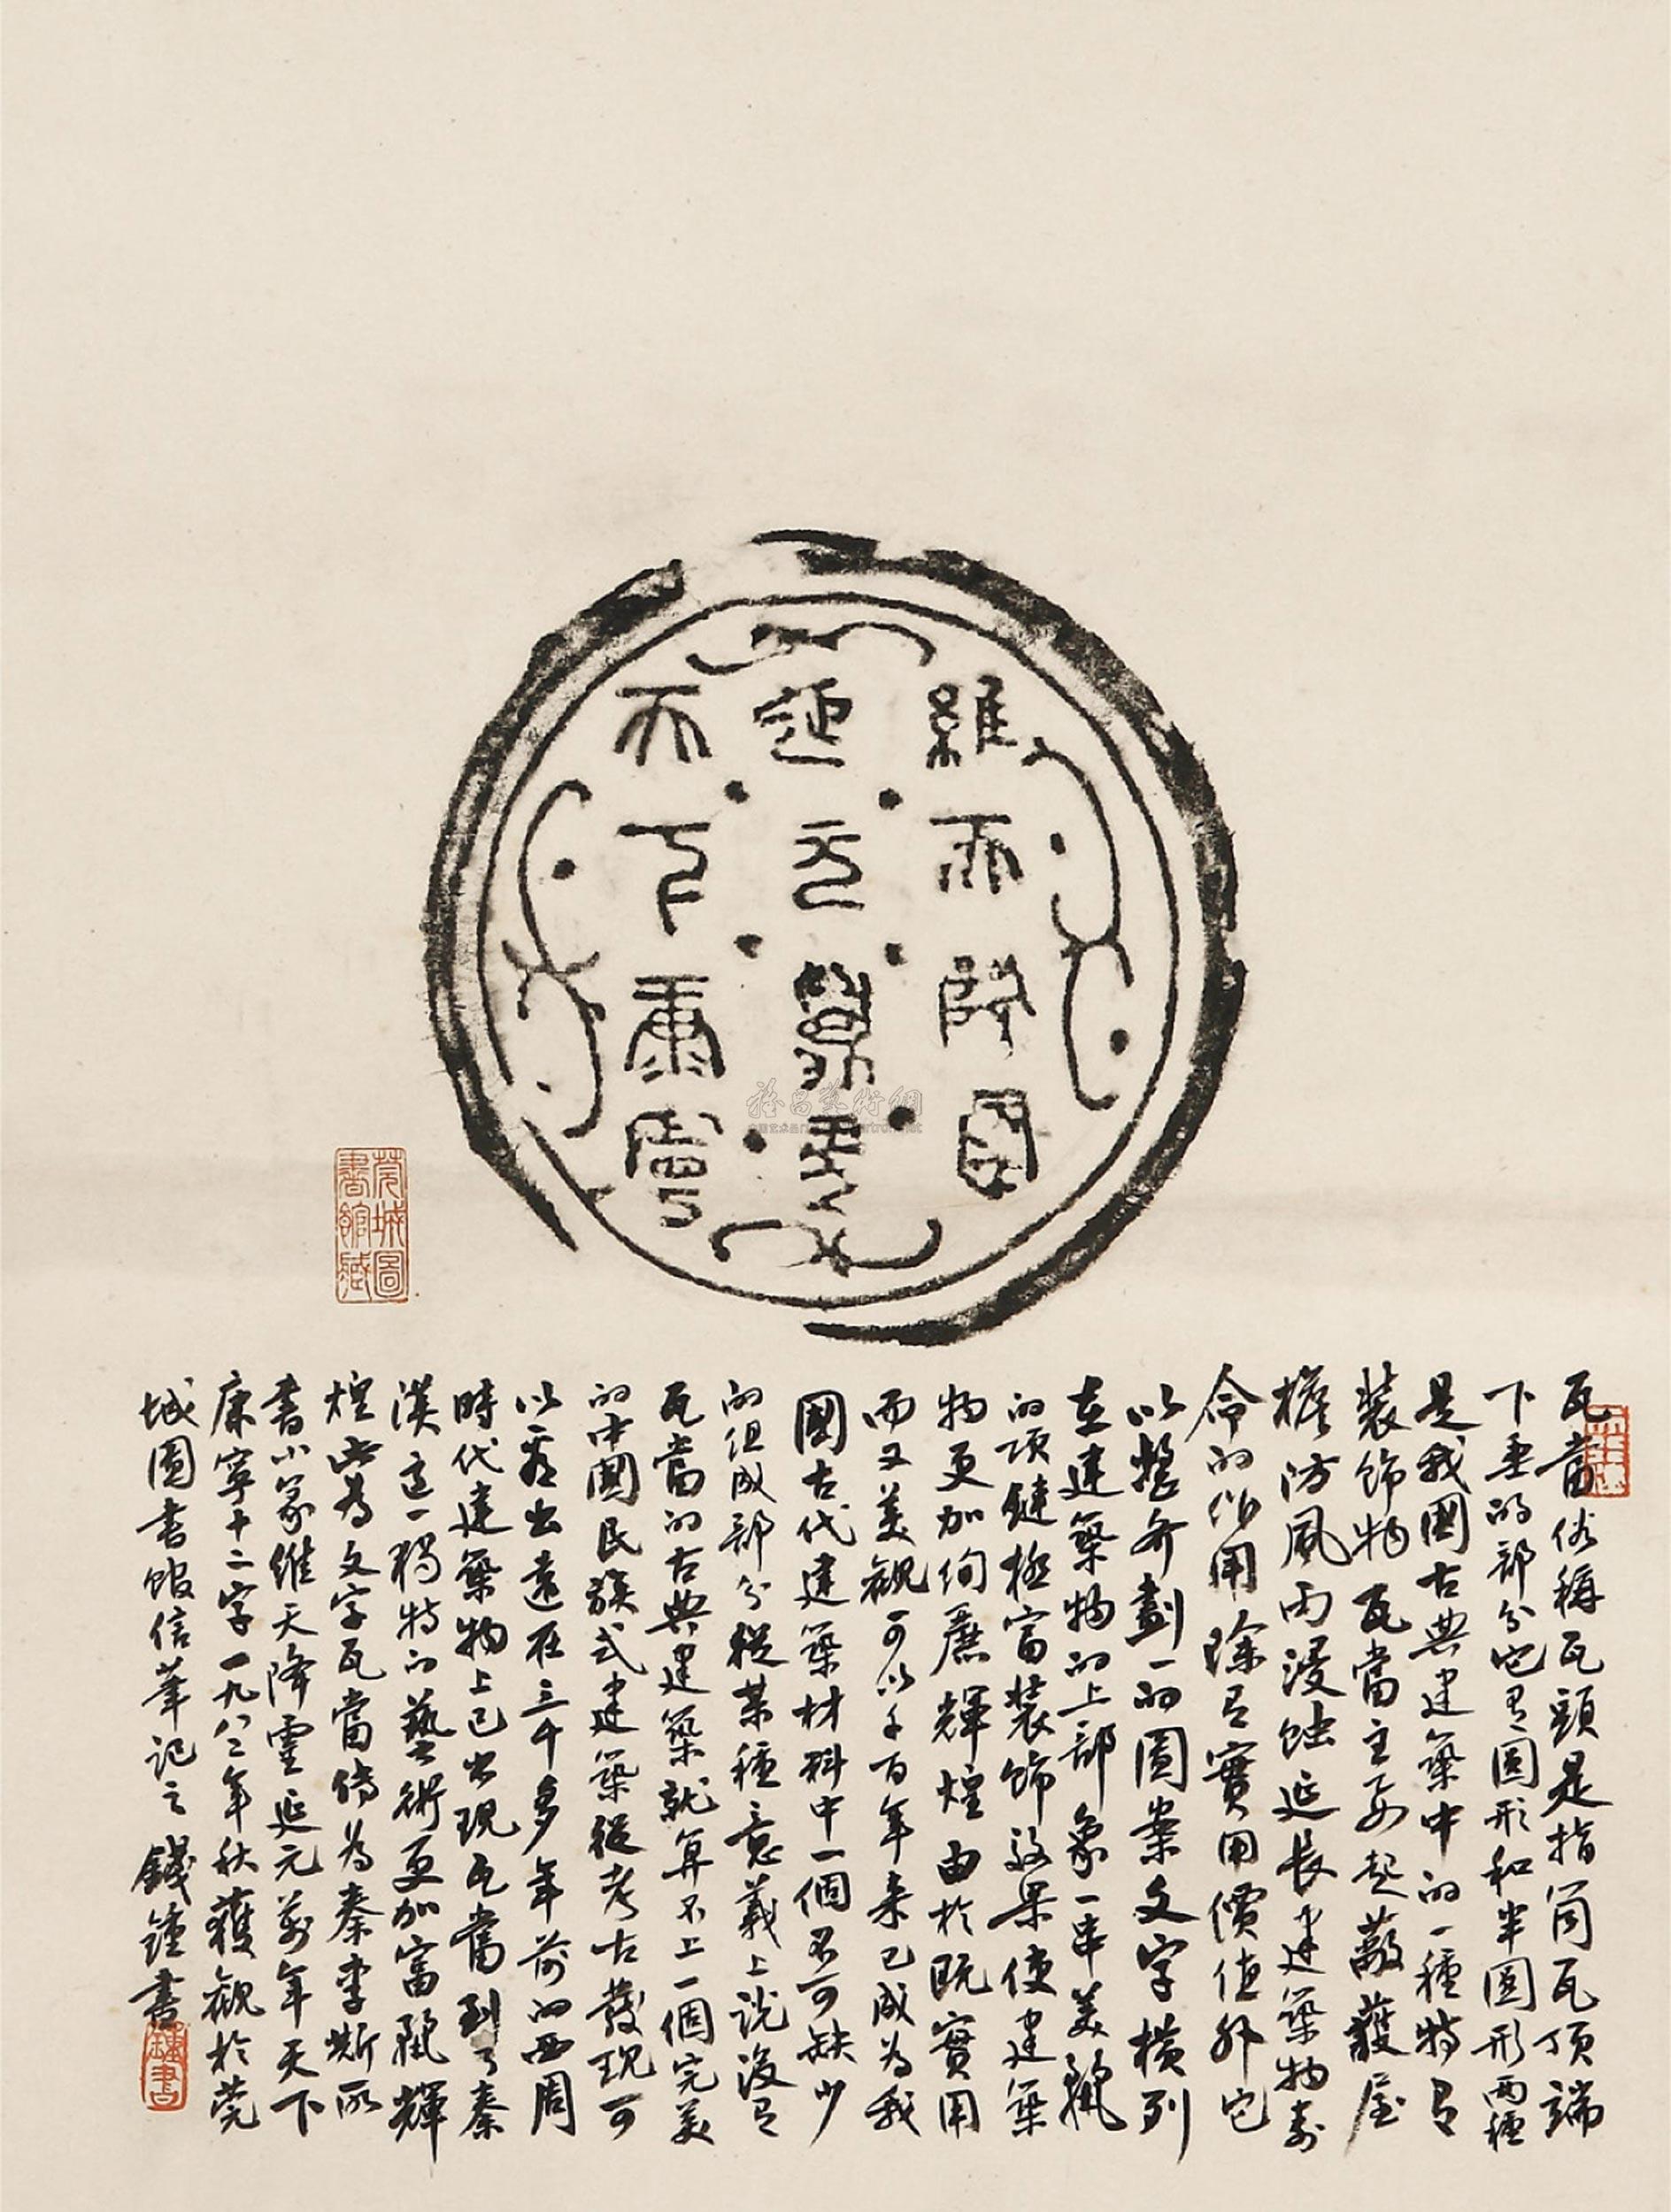 維天降靈
延元萬年
天下康寧
莞城圖
書館藏
瓦當俗稱瓦頭是指筒瓦頂端
下垂的部分它有圓形和半圓形兩種
是我國古典建築中的一種特有
裝飾物瓦當主要起蔽護屋
檐防風雨侵蝕延長建築物壽
命的作用除有實用價值外它
以整齊劃一的圖案文字橫列
在建築物的上部象一串美麗
的項鏈極富裝飾效果使建築
物更加絢麗輝煌由於既實用
而又美觀可以千百年來已成為我
國古代建築材料中一個不可缺少
的组成部分從某種意義上說沒有
瓦當的古典建築就算不上一個完美
的中國民族式建築從考古發現可
以看出遠在三千多年前的西周
時代建築物上已出現瓦當到了秦
漢這一獨特的藝術更加富麗輝
煌此為文字瓦當傳為秦李斯所
書小篆維天降靈延元萬年天下
康寧十二字一九八二年秋獲觀於莞
城圖書館信筆記之錢鍾書
鍾書
福昌藝術網